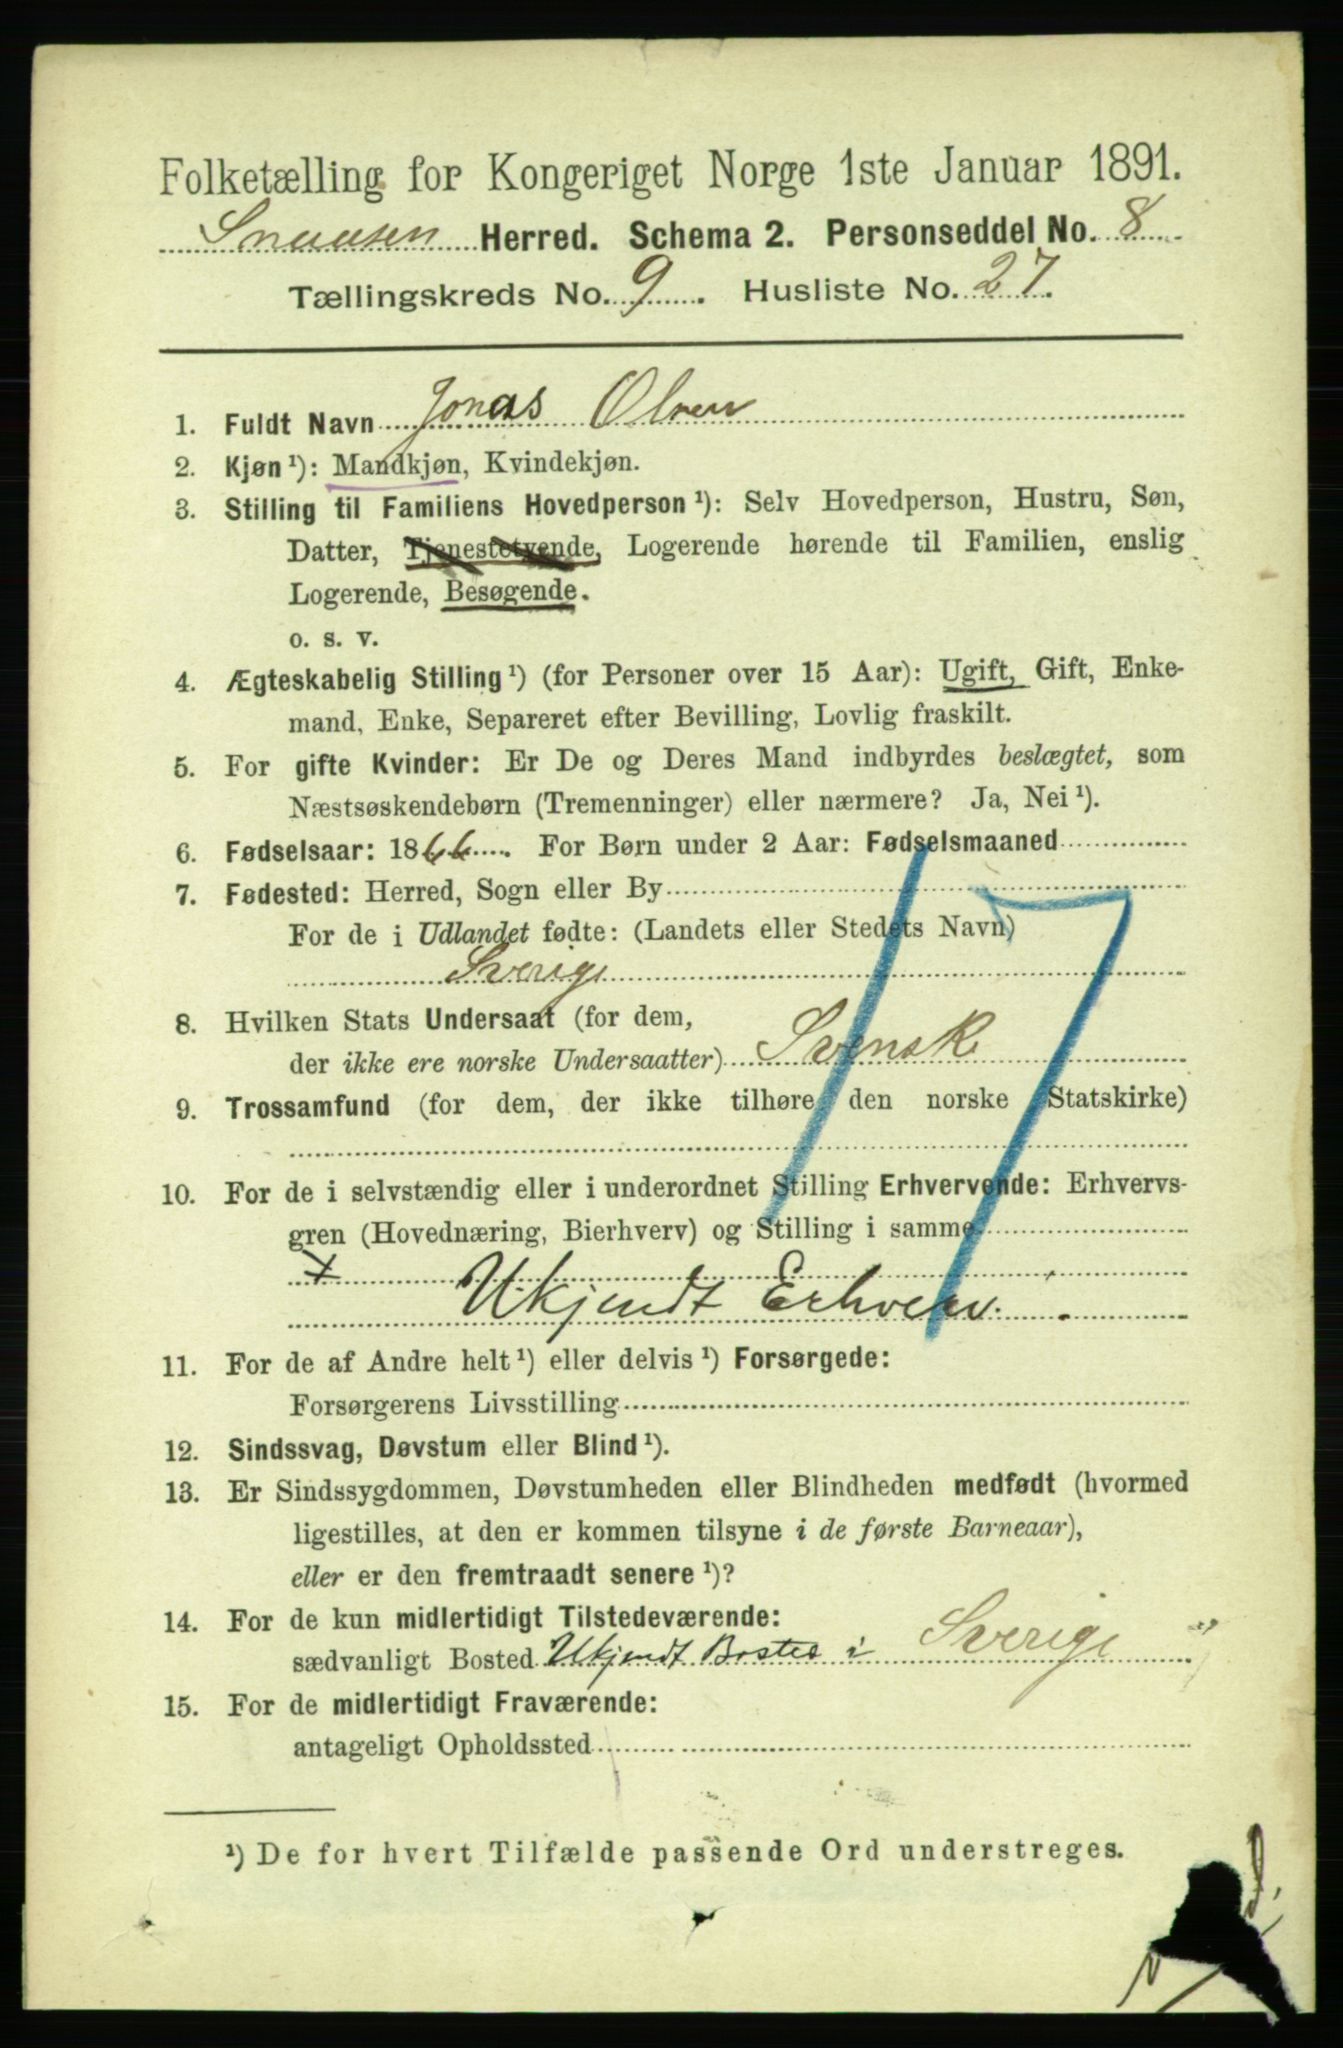 Folketælling for Kongeriget Norge 1ste Januar 1891.
Snaasen Herred. Schema 2. Personseddel No. 8
Tællingskreds No. 9. Husliste No. 27.
1. Fuldt Navn Jonas Olsen
2. Kjøn ¹): Mandkjøn, Kvindekjøn.
3. Stilling til Familiens Hovedperson ¹): Selv Hovedperson, Hustru, Søn,
Datter, Tjenestetyende, Logerende hørende til Familien, enslig
Logerende, Besøgende.
o. s. v.
4. Ægteskabelig Stilling ¹) (for Personer over 15 Aar): Ugift, Gift, Enke-
mand, Enke, Separeret efter Bevilling, Lovlig fraskilt.
5. For gifte Kvinder: Er De og Deres Mand indbyrdes beslægtet, som
Næstsøskendebørn (Tremenninger) eller nærmere? Ja, Nei ¹).
6. Fødselsaar: 1866. For Børn under 2 Aar: Fødselsmaaned
7. Fødested: Herred, Sogn eller By
For de i Udlandet fødte: (Landets eller Stedets Navn)
Sverige
8. Hvilken Stats Undersaat (for dem,
der ikke ere norske Undersaatter) Svensk
9. Trossamfund (for dem, der ikke tilhøre den norske Statskirke)
17
10. For de i selvstændig eller i underordnet Stilling Erhvervende: Erhvervs-
gren (Hovednæring, Bierhverv) og Stilling i samme
Ukjendt Erhverv.
11. For de af Andre helt ¹) eller delvis ¹) Forsørgede:
Forsørgerens Livsstilling
12. Sindssvag, Døvstum eller Blind ¹).
13. Er Sindssygdommen, Døvstumheden eller Blindheden medfødt (hvormed
ligestilles, at den er kommen tilsyne i de første Barneaar),
eller er den fremtraadt senere ¹)?
14. For de kun midlertidigt Tilstedeværende:
sædvanligt Bosted Ukjendt Bosted i Sverige
15. For de midlertidigt Fraværende:
antageligt Opholdssted
¹) De for hvert Tilfælde passende Ord understreges.